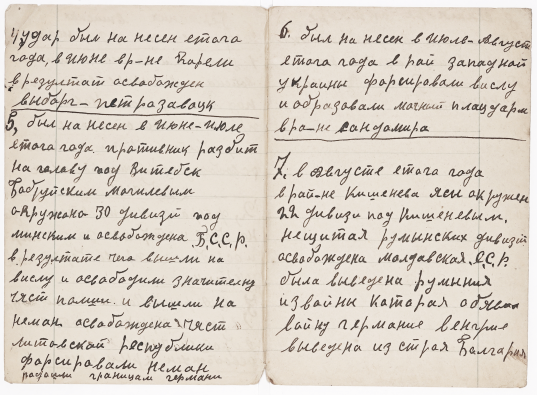 4, удар был на несен етога
года, в июне вр-не Карели
в результат освобожден
выборг - петразавоцк
5, был на несен в июне-июле
етого года. противник разбит
на голову под Витебск
Бобруйским Могилевым
окружоно 30 дивизй под
минским и освобождена Б.С.С.Р.
в резултате чего вышли на
вислу и освободили значителну
част полши. и вышли на
неман. освобождена част
литовской республики
форсировали неман
подошли границам германи
6. был на несек в июле-август
етого года в рай западной
украины форсировали вислу
и образовали мочний плацдарм
вра-не сандомира
7. в августе етого года
в рай-не Кишенева ясы окружен
22 дивизи под Кишеневым.
нещитая румынских дивизй
освобождена Молдавская С.С.Р.
была выведена румыния
из войны каторая обявила
войну германие венгрие
выведена из строя Болгария